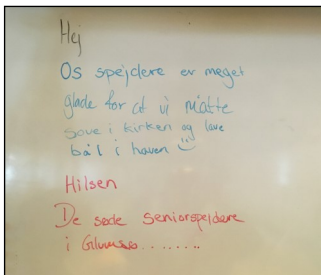 Hej
Os spejdere er meget
glade for at vi måtte
sove i kirken og lave
bål i haven ☺
Hilsen
De søde seniorspejdere
i Glumsø........